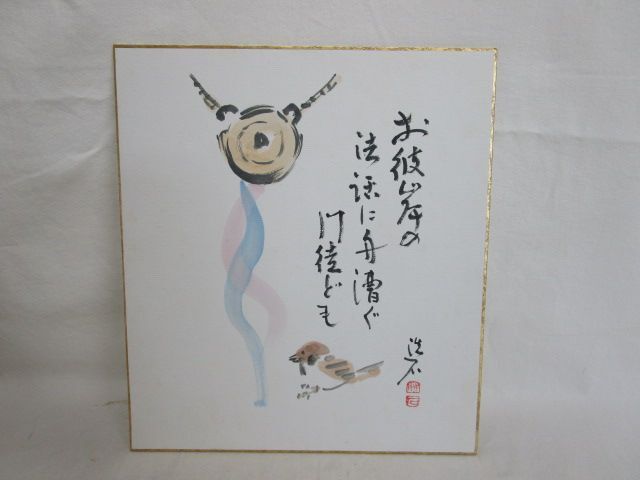 お彼岸の
法話に舟漕ぐ
門徒ども